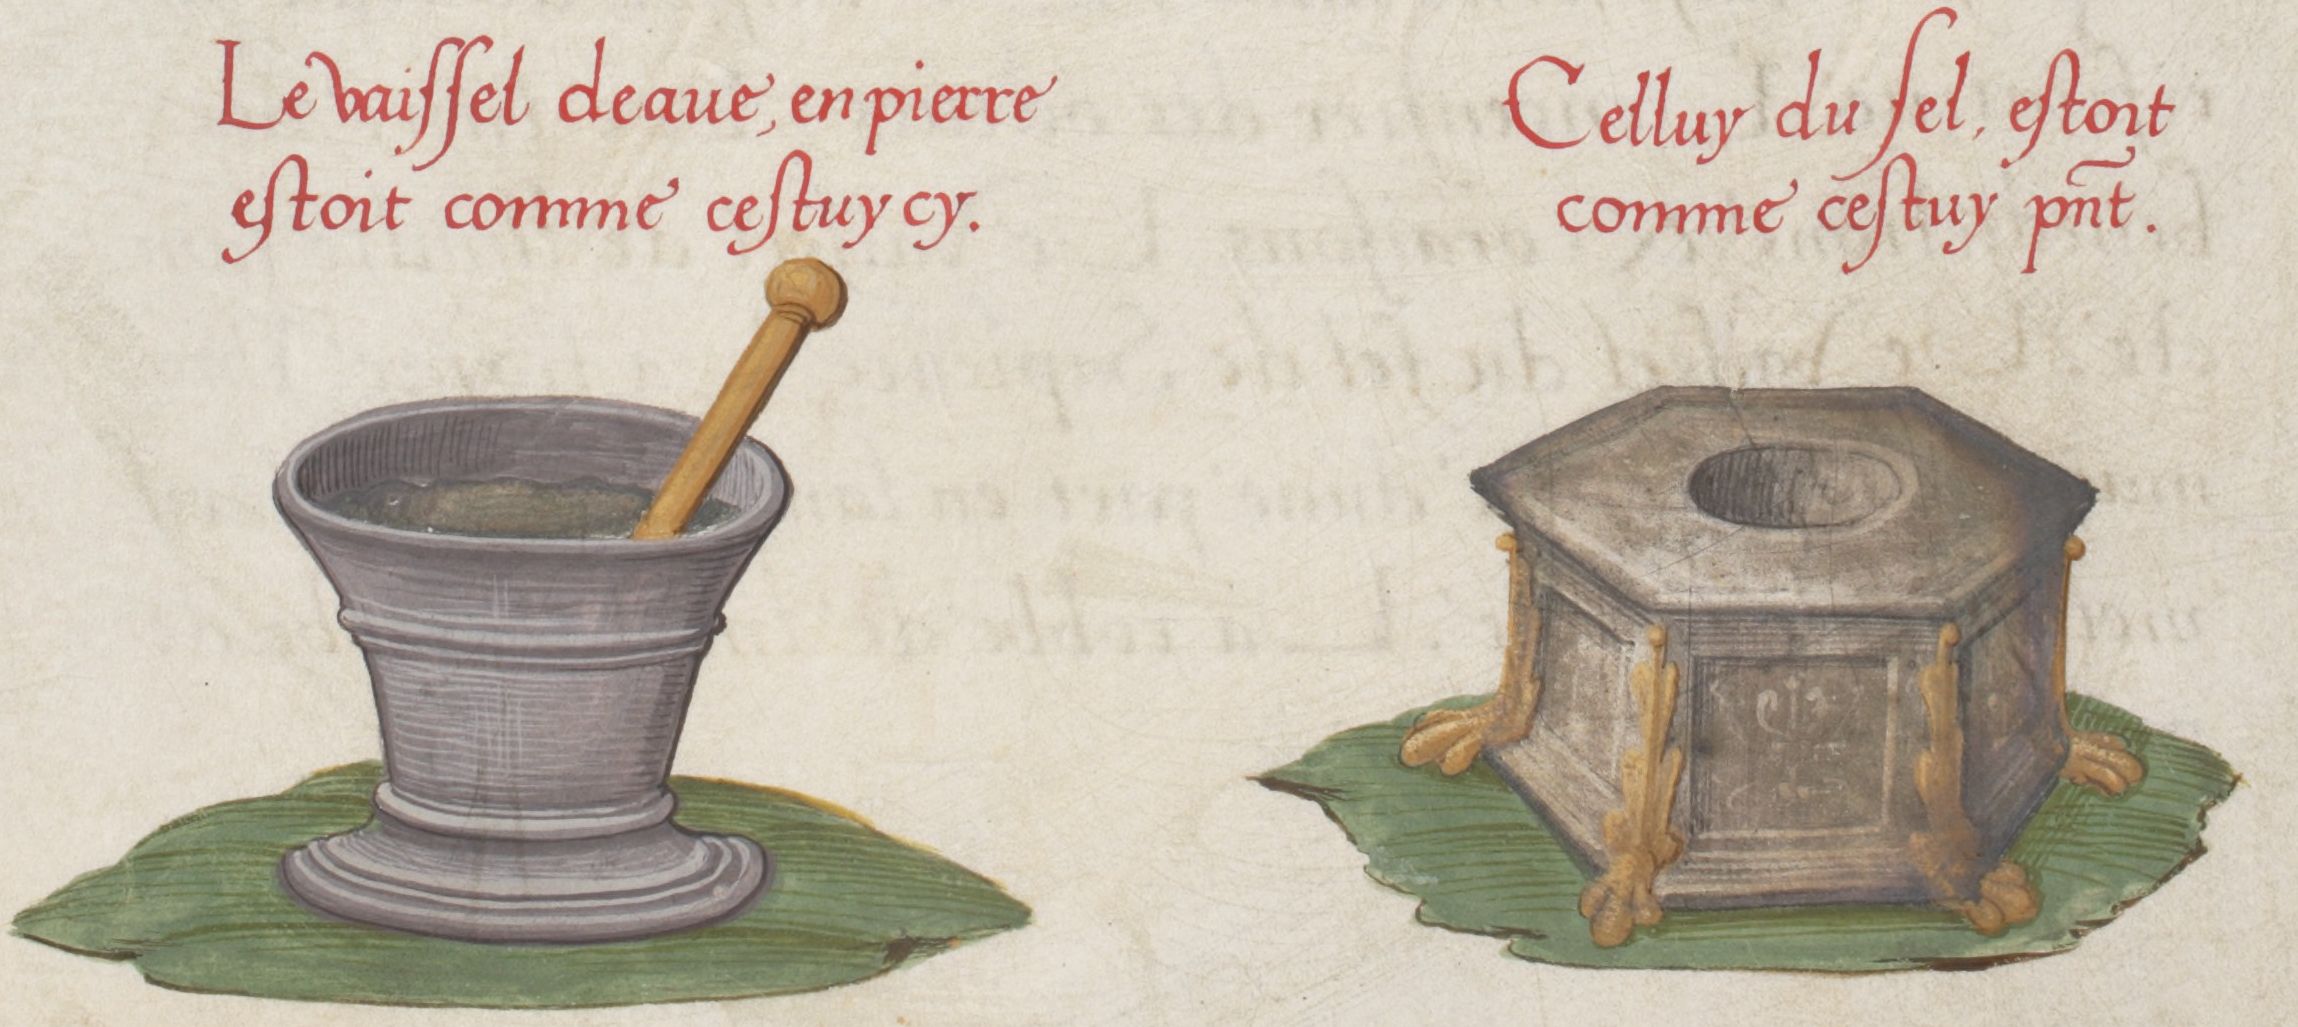 Le vaissel deaue, en pierre
estoit comme cestuy cy.
Celluy du sel, estoit
comme cestuy pn̄t.